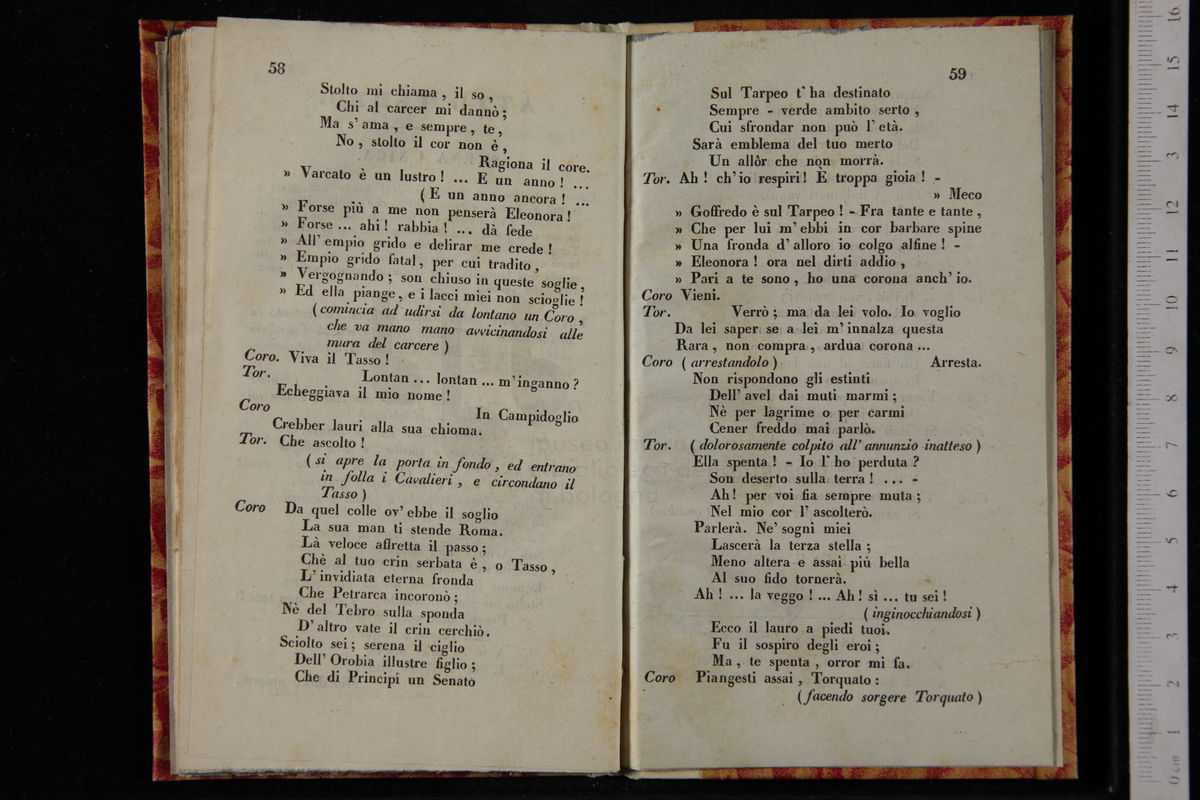 58
Stolto mi chiama , il so ,
Chi al carcer mi dannò ;
Ma s' ama , e sempre , te ,
No , stolto il cor non è ,
Ragiona il core.
» Varcato è un lustro ! ... E un anno ! ...
( E un anno ancora ! ...
» Forse più a me non penserà Eleonora !
» Forse ... ahi ! rabbia ! ... dà fede
» All' empio grido e delirar me crede !
» Empio grido fatal , per cui tradito ,
» Vergognando ; son chiuso in queste soglie ,
» Ed ella piange , e i lacci miei non scioglie !
( comincia ad udirsi da lontano un Coro ,
che va mano mano avvicinandosi alle
mura del carcere )
Coro. Viva il Tasso !
Tor. Lontan ... lontan ... m' inganno ?
Echeggiava il mio nome !
Coro In Campidoglio
Crebber lauri alla sua chioma.
Tor. Che ascolto !
( si apre la porta in fondo , ed entrano
in folla i Cavalieri , e circondano il
Tasso )
Coro Da quel colle ov' ebbe il soglio
La sua man ti stende Roma.
Là veloce affretta il passo ;
Chè al tuo crin serbata è , o Tasso ,
L' invidiata eterna fronda
Che Petrarca incoronò ;
Nè del Tebro sulla sponda
D' altro vate il crin cerchiò.
Sciolto sei ; serena il ciglio
Dell' Orobia illustre figlio ;
Che di Principi un Senato
59
Sul Tarpeo t' ha destinato
Sempre - verde ambito serto ,
Cui sfrondar non può l' età.
Sarà emblema del tuo merto
Un allôr che non morrà.
Tor. Ah ! ch' io respiri ! È troppa gioia ! -
» Meco
» Goffredo è sul Tarpeo ! - Fra tante e tante ,
» Che per lui m' ebbi in cor barbare spine
» Una fronda d' alloro io colgo alfine ! -
» Eleonora ! ora nel dirti addio ,
» Pari a te sono , ho una corona anch' io.
Coro Vieni.
Tor. Verrò ; ma da lei volo. Io voglio
Da lei saper se a lei m' innalza questa
Rara , non compra , ardua corona ...
Coro ( arrestandolo ) Arresta.
Non rispondono gli estinti
Dell' avel dai muti marmi ;
Nè per lagrime o per carmi
Cener freddo mai parlò.
Tor. ( dolorosamente colpito all' annunzio inatteso )
Ella spenta ! - Io l' ho perduta ?
Son deserto sulla terra ! ... -
Ah ! per voi fia sempre muta ;
Nel mio cor l' ascolterò.
Parlerà. Ne' sogni miei
Lascerà la terza stella ;
Meno altera e assai più bella
Al suo fido tornerà.
Ah ! ... la veggo ! ... Ah ! sì ... tu sei !
( inginocchiandosi )
Ecco il lauro a piedi tuoi.
Fu il sospiro degli eroi ;
Ma , te spenta , orror mi fa.
Coro Piangesti assai , Torquato :
( facendo sorgere Torquato )